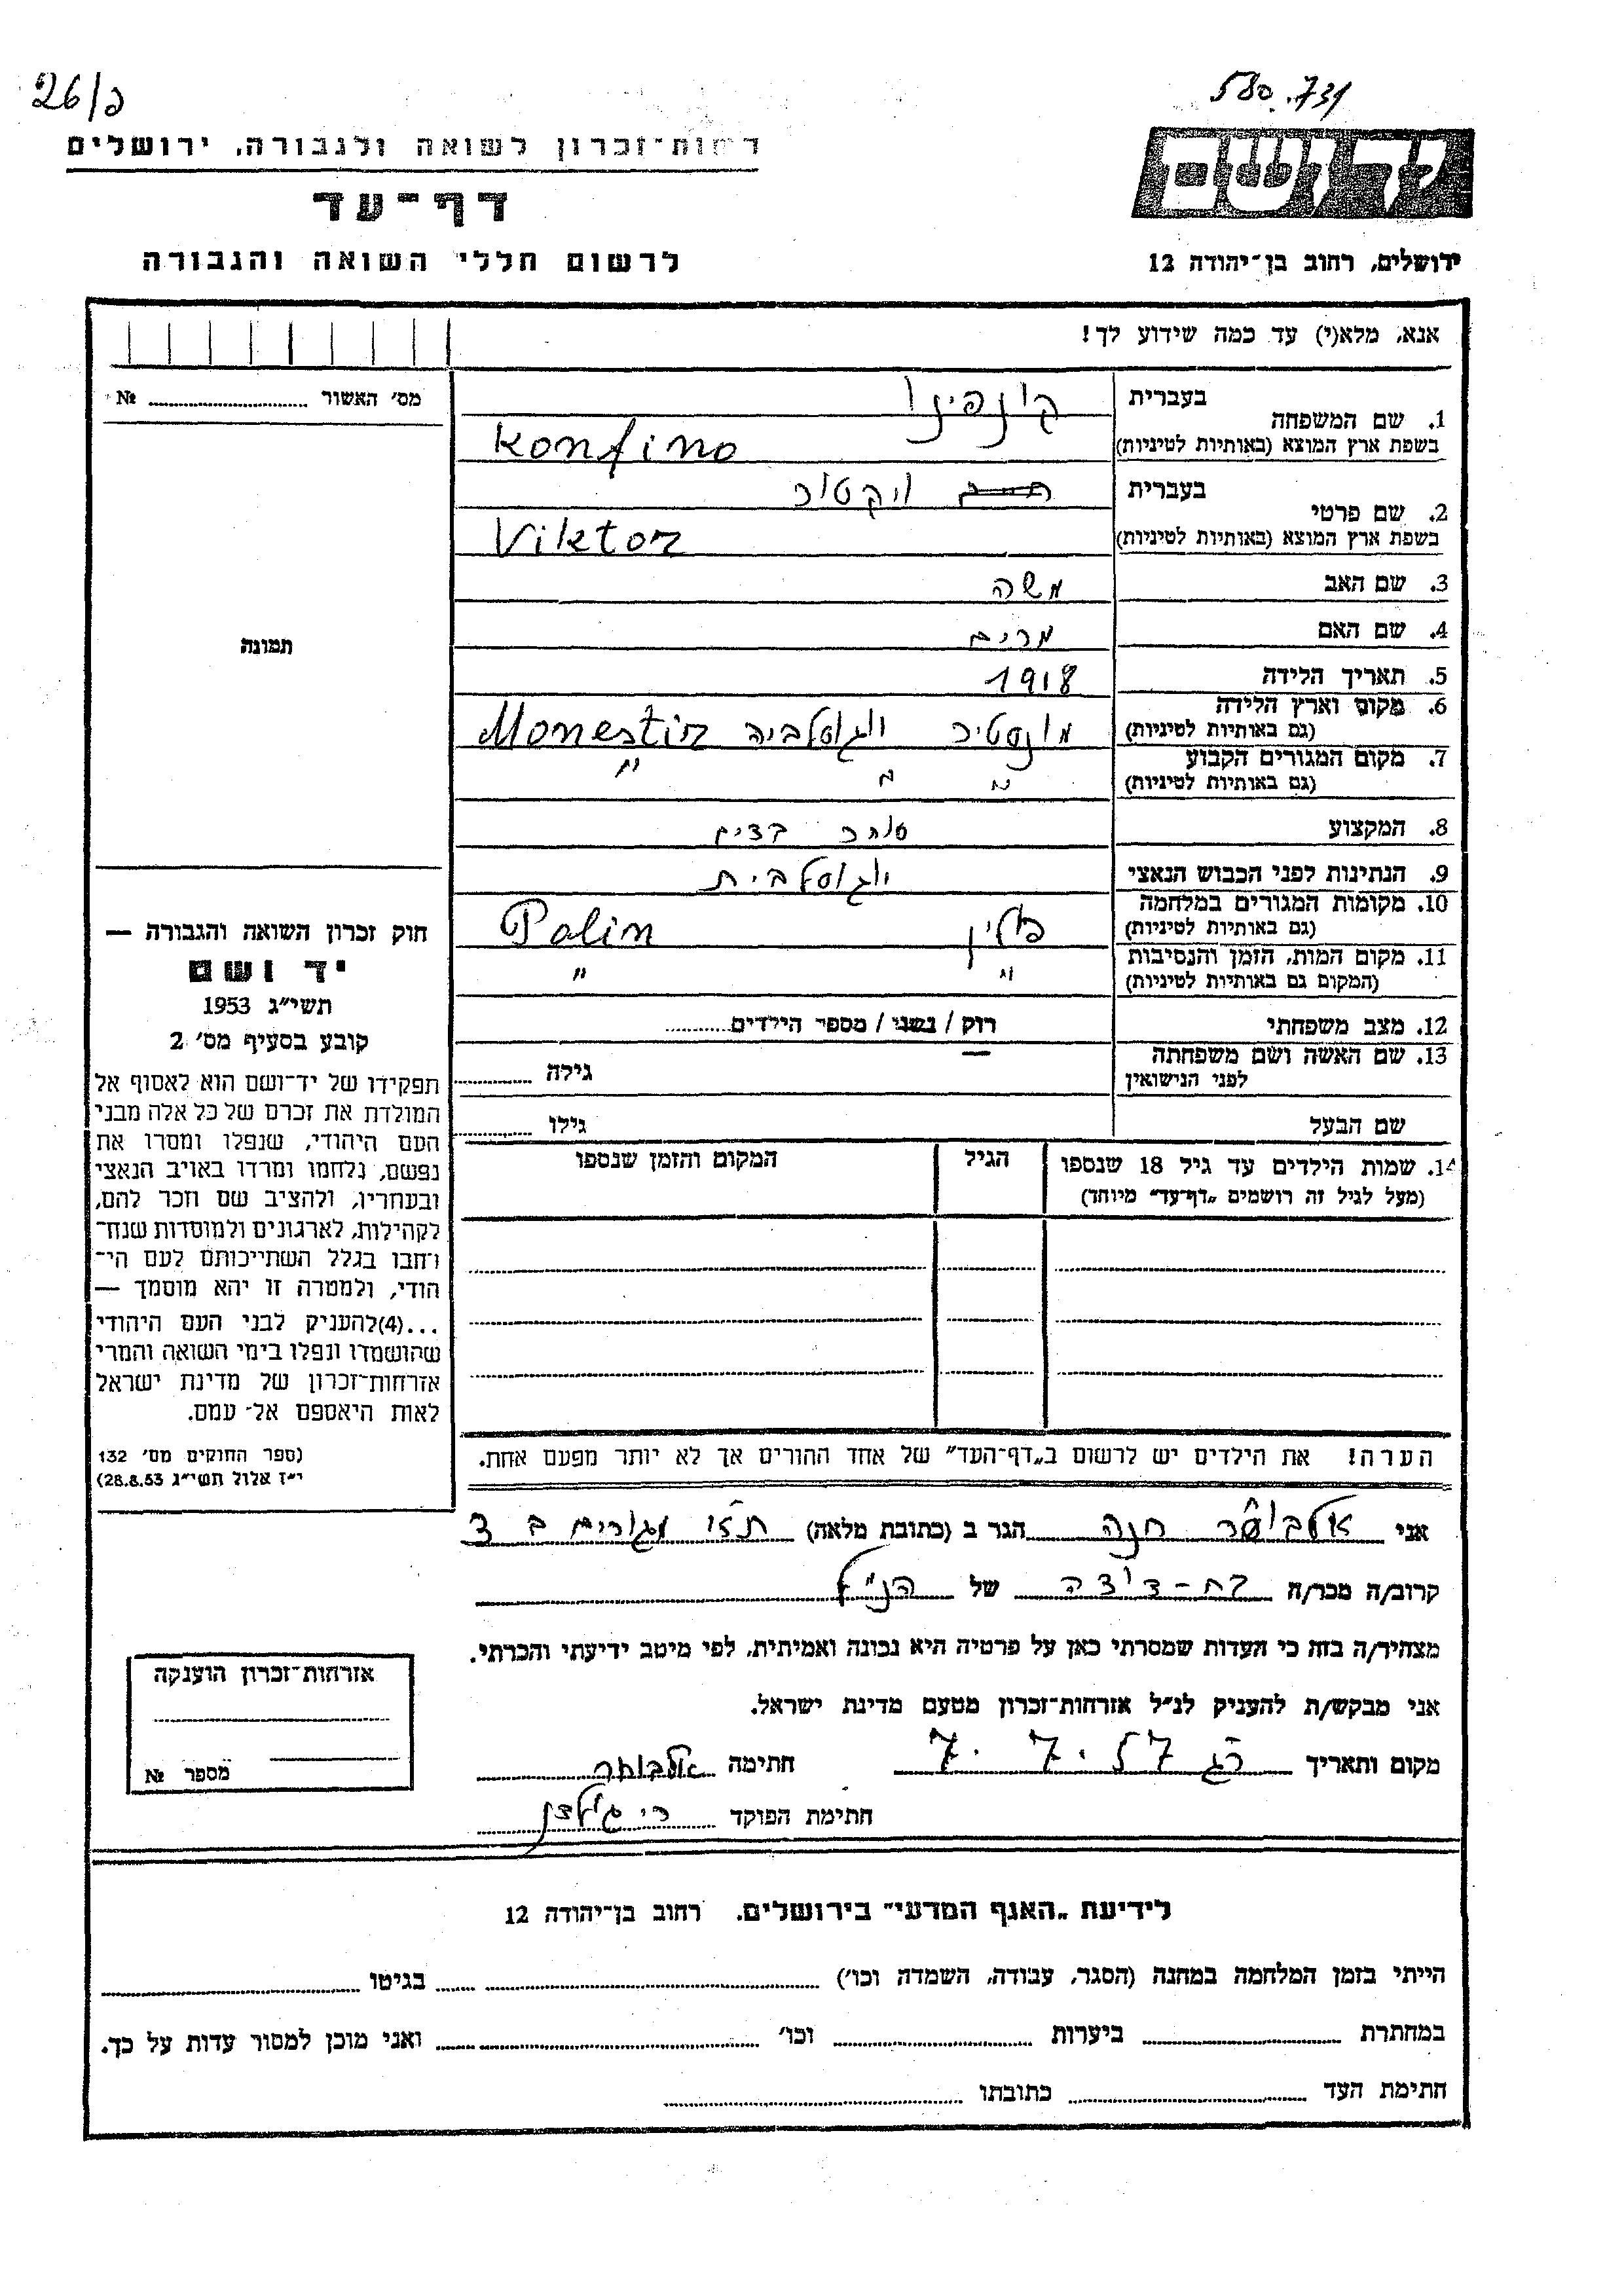 26/פ
580.731
רשות־זכרון לשואה ולגבורה, ירושלים
דף־עד
לרשום חללי השואה והגבורה
ירושלים, רחוב בן־יהודה 12
אנא, מלא(י) עד כמה שידוע לך!
מס׳ האשור № ............
תמונה
חוק זכרון השואה והגבורה —
יד ושם
תשי״ג 1953
קובע בסעיף מס׳ 2
תפקידו של יד־ושם הוא לאסוף אל
המולדת את זכרם של כל אלה מבני
העם היהודי, שנפלו ומסרו את
נפשם, נלחמו ומרדו באויב הנאצי
ובעוזריו, ולהציב שם וזכר להם,
לקהילות, לארגונים ולמוסדות שנח־
רבו בגלל השתייכותם לעם הי־
הודי, ולמטרה זו יהא מוסמך —
...(4) להעניק לבני העם היהודי
שהושמדו ונפלו בימי השואה והמרי
אזרחות־זכרון של מדינת ישראל
לאות היאספם אל־ עמם.
(ספר החוקים מס׳ 132
י״ז אלול תשי״ג 28.8.53)
1. שם המשפחה
בעברית קונפינו
בשפת ארץ המוצא (באותיות לטיניות) Konfino
2. שם פרטי
בעברית ויקטור
בשפת ארץ המוצא (באותיות לטיניות) Viktor
3. שם האב משה
4. שם האם מרים
5. תאריך הלידה 1918
6. מקום וארץ הלידה
(גם באותיות לטיניות) מונסטיר יוגוסלביה Monestir
7. מקום המגורים הקבוע
(גם באותיות לטיניות) " " "
8. המקצוע סוחר בדים
9. הנתינות לפני הכבוש הנאצי יוגוסלבית
10. מקומות המגורים במלחמה
(גם באותיות לטיניות) פולין Polin
11. מקום המות, הזמן והנסיבות
(המקום גם באותיות לטיניות) " "
12. מצב משפחתי רוק / נשוי / מספר הילדים
13. שם האשה ושם משפחתה
לפני הנישואין גילה
שם הבעל גילו
14. שמות הילדים עד גיל 18 שנספו
(מעל לגיל זה רושמים „דף־עד״ מיוחד)
הגיל
המקום והזמן שנספו
הערה! את הילדים יש לרשום ב„דף־העד״ של אחד ההורים אך לא יותר מפעם אחת.
אני אלבוחר חנה הגר ב (כתובת מלאה) מגורים ב 3
קרוב/ה מכר/ה בת-דודה של הנ״ל
מצהיר/ה בזה כי העדות שמסרתי כאן על פרטיה היא נכונה ואמיתית, לפי מיטב ידיעתי והכרתי.
אני מבקש/ת להעניק לנ״ל אזרחות־זכרון מטעם מדינת ישראל.
מקום ותאריך 7. 7. 57 חתימה אלבוחר
חתימת הפוקד
אזרחות־זכרון הוענקה
מספר №
לידיעת „האגף המדעי״ בירושלים, רחוב בן־יהודה 12
הייתי בזמן המלחמה במחנה (הסגר, עבודה, השמדה וכו׳) בגיטו
במחתרת ביערות וכו׳ ואני מוכן למסור עדות על כך.
חתימת העד כתובתו